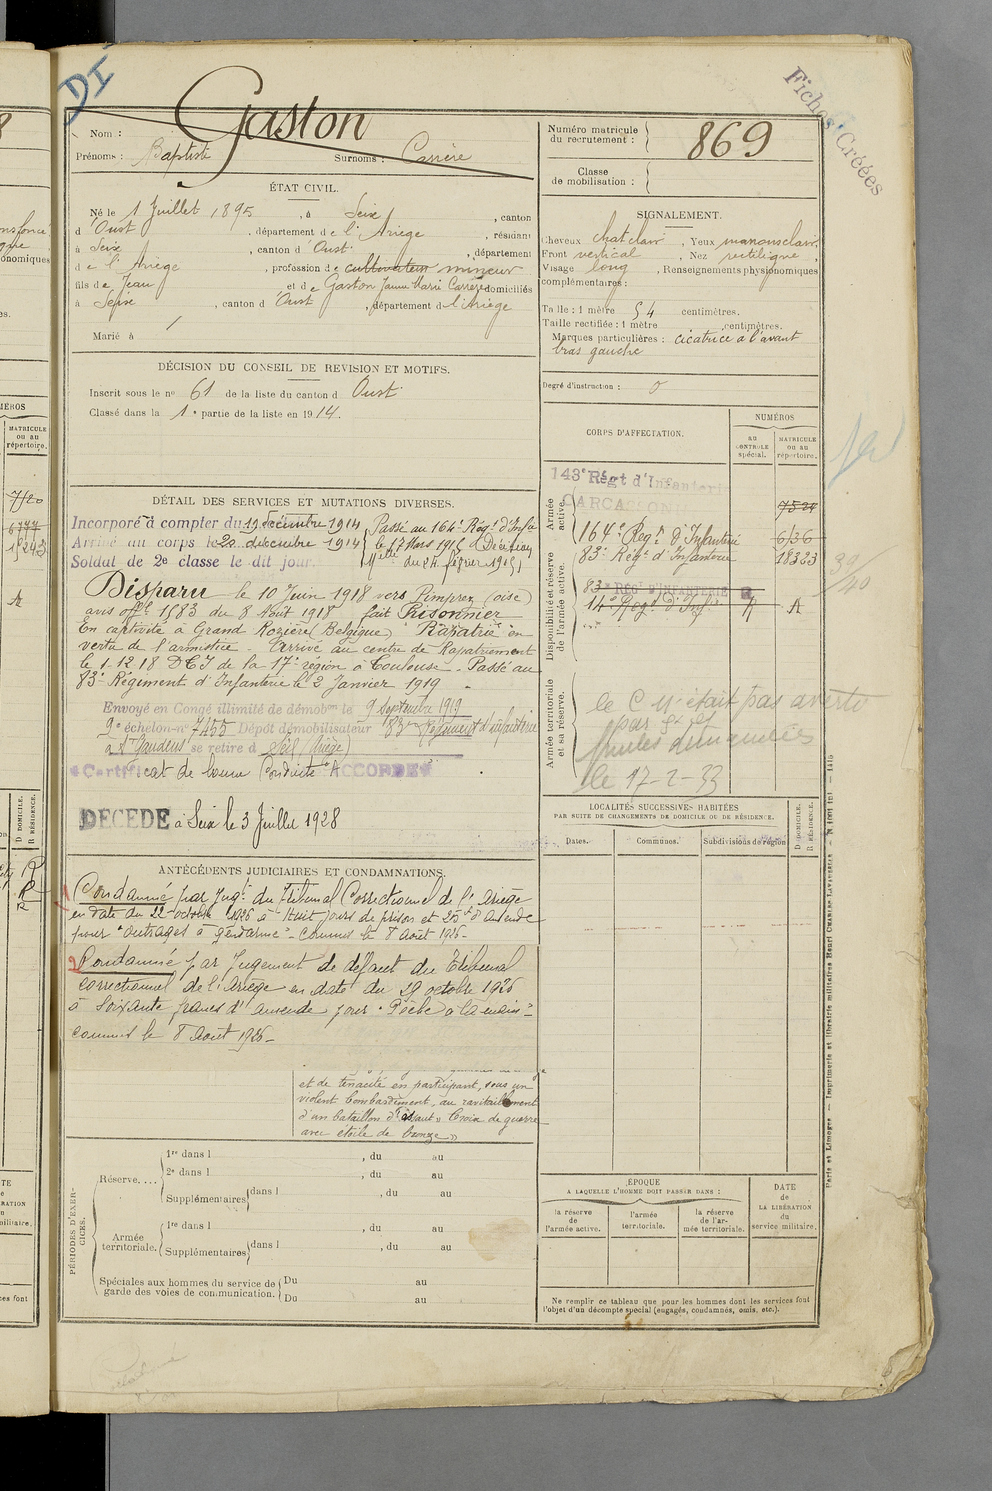 DI
Fiches Créées
Nom : Gaston
Prénoms : Baptiste Surnoms : Carrère
ÉTAT CIVIL.
Né le 1 Juillet 1895, à Seix, canton
d'Oust, département de l'Ariège, résidant
à Seix, canton d'Oust, département
de l'Ariège, profession de cultivateur mineur
fils de Jean et de Gaston Jeanne Marie Carrère domiciliés
à Seix, canton d'Oust, département de l'Ariège
Marié à
DÉCISION DU CONSEIL DE REVISION ET MOTIFS.
Inscrit sous le no 61 de la liste du canton d Oust
Classé dans la 1e partie de la liste en 1914.
DÉTAIL DES SERVICES ET MUTATIONS DIVERSES.
Incorporé à compter du 19 décembre 1914 Passé au 164e Régt d'Infie
Arrivé au corps le 20 décembre 1914 le 17 Mars 1915 d Décision
Soldat de 2e classe le dit jour. Melle du 24 février 1915
Disparu le 10 Juin 1918 vers Pimprez (oise)
avis offel 1583 du 8 Août 1918 fait Prisonnier
En captivité à Grand Rozière (Belgique) Rapatrié en
vertu de l'armistice. Arrivé au centre de Rapatriement
le 1-12 18 DCI de la 17e région à Toulouse. Passé au
83e Régiment d'Infanterie le 2 Janvier 1919
Envoyé en Congé illimité de démobon le 9 Septembre 1919
9e échelon no 7455 Dépôt démobilisateur 83me Régiment d'infanterie
à St Gaudens se retire à Seix (Ariège)
Certificat de bonne Conduite ACCORDÉ
DÉCÉDÉ à Seix le 3 Juillet 1928
ANTÉCÉDENTS JUDICIAIRES ET CONDAMNATIONS.
1 Condamné par Jugt du tribunal Correctionnel de l'Ariège
en date du 22 octobre 1926 à Huit jours de prison et 25f d'Amende
pour "outrages à gendarme" - Commis le 8 Août 1926-
2 Condamné par Jugement de défaut du Tribunal
correctionnel de l'Ariège en date du 29 octobre 1926
à Soixante francs d'amende pour "Pêche à la main"
commis le 8 Août 1926-
et de ténacité en participant, sous un
violent bombardement, au ravitaillement
d'un bataillon d'assaut » Croix de guerre
avec étoile de bronze »
PÉRIODES D'EXERCICES.
Réserve.... 1re dans l , du au
2e dans l , du au
Supplémentaires dans l , du au
Armée territoriale. 1re dans l , du au
Supplémentaires dans l , du au
Spéciales aux hommes du service de garde des voies de communication. Du au
Du au
Numéro matricule du recrutement : 869
Classe de mobilisation :
SIGNALEMENT.
Cheveux chat clair, Yeux marrons clair,
Front vertical, Nez rectiligne,
Visage long, Renseignements physionomiques
complémentaires :
Taille : 1 mètre 54 centimètres.
Taille rectifiée : 1 mètre , centimètres.
Marques particulières : cicatrice à l'avant
bras gauche
Degré d'instruction : 0
CORPS D'AFFECTATION.
NUMÉROS
AU CONTROLE spécial.
MATRICULE ou au répertoire.
Armée active.
143e Régt d'Infanterie
CARCASSONNE
164e Régt d'Infanterie 6136
Disponibilité et réserve de l'armée active.
83e Régt d'Infanterie 18323
83e RÉGt D'INFANTERIE
14e Régt d'Infie A
Armée territoriale et sa réserve.
le C n'était pas averti
le 17-2-33
39/40
LOCALITÉS SUCCESSIVES HABITÉES
PAR SUITE DE CHANGEMENTS DE DOMICILE OU DE RÉSIDENCE.
Dates. Communes. Subdivisions de région
D DOMICILE.
R RÉSIDENCE.
ÉPOQUE
A LAQUELLE L'HOMME DOIT PASSER DANS :
la réserve de l'armée active.
l'armée territoriale.
la réserve de l'armée territoriale.
DATE de LA LIBÉRATION du service militaire.
Ne remplir ce tableau que pour les hommes dont les services font
l'objet d'un décompte spécial (engagés, condamnés, omis, etc.).
Paris et Limoges. — Imprimerie et librairie militaires Henri CHARLES-LAVAUZELLE.